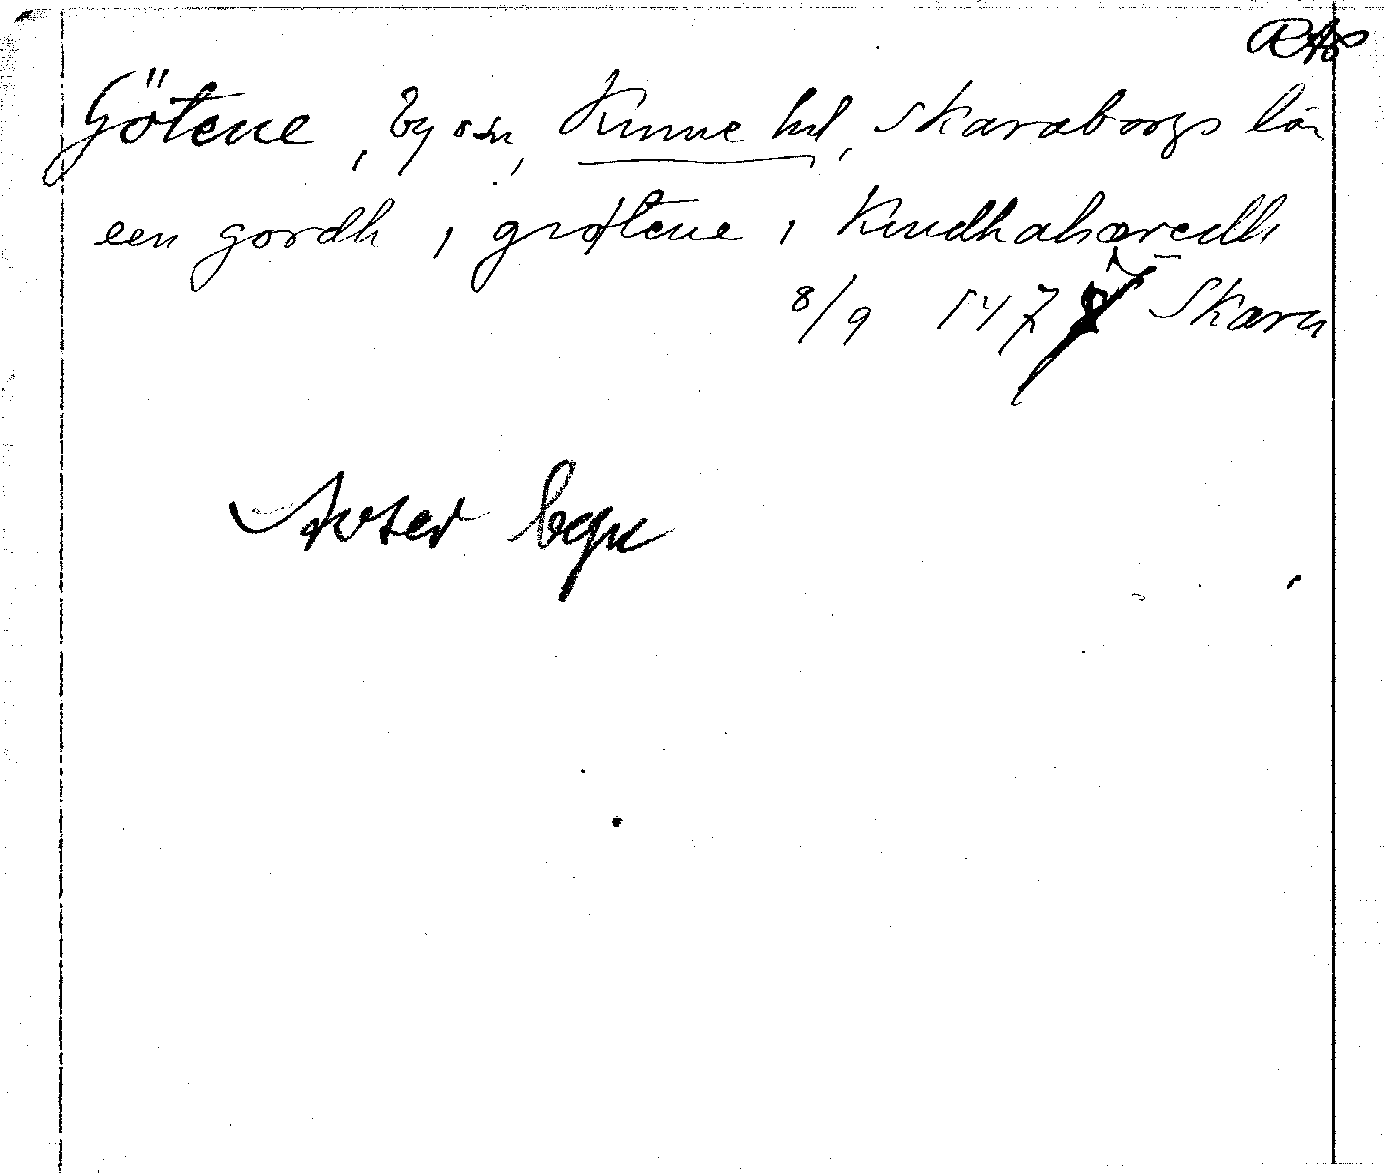 RAp
Götene, by o sn, Kinne hd, Skaraborgs län
een gordh i grøtene i Kindhahæredh
8/9 147 Skara
Avser byn